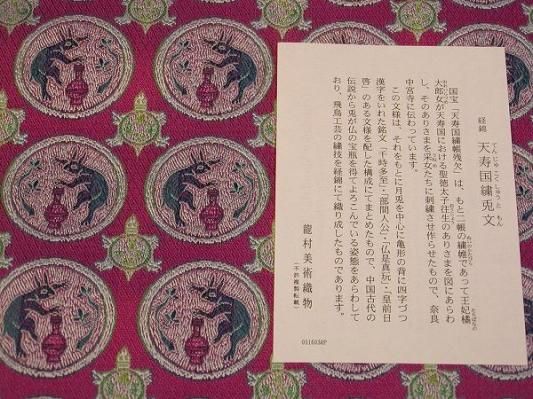 経錦　天寿国繍兎文
てんじゅこくしゅうともん
国宝「天寿国繍帳残欠」は、もと二帳の繍帷であって王妃橘
大郎女が天寿国における聖徳太子往生のありさまを図にあらわ
し、そのありさまを采女たちに刺繍させ作らせたもので、奈良
中宮寺に伝わっています。
この文様は、それをもとに月兎を中心に亀形の背に四字づつ
漢字をいれた銘文「于時多至」・「部間人公」・「仏是真玩」・「皇前日
啓」のある文様を配した構成にてまとめたもので、中国古代の
伝説から兎が仏の宝瓶を得てよろこんでいる姿態をあらわして
おり、飛鳥工芸の繍技を経錦にて織り成したものであります。
龍村美術織物
(不許複製転載)